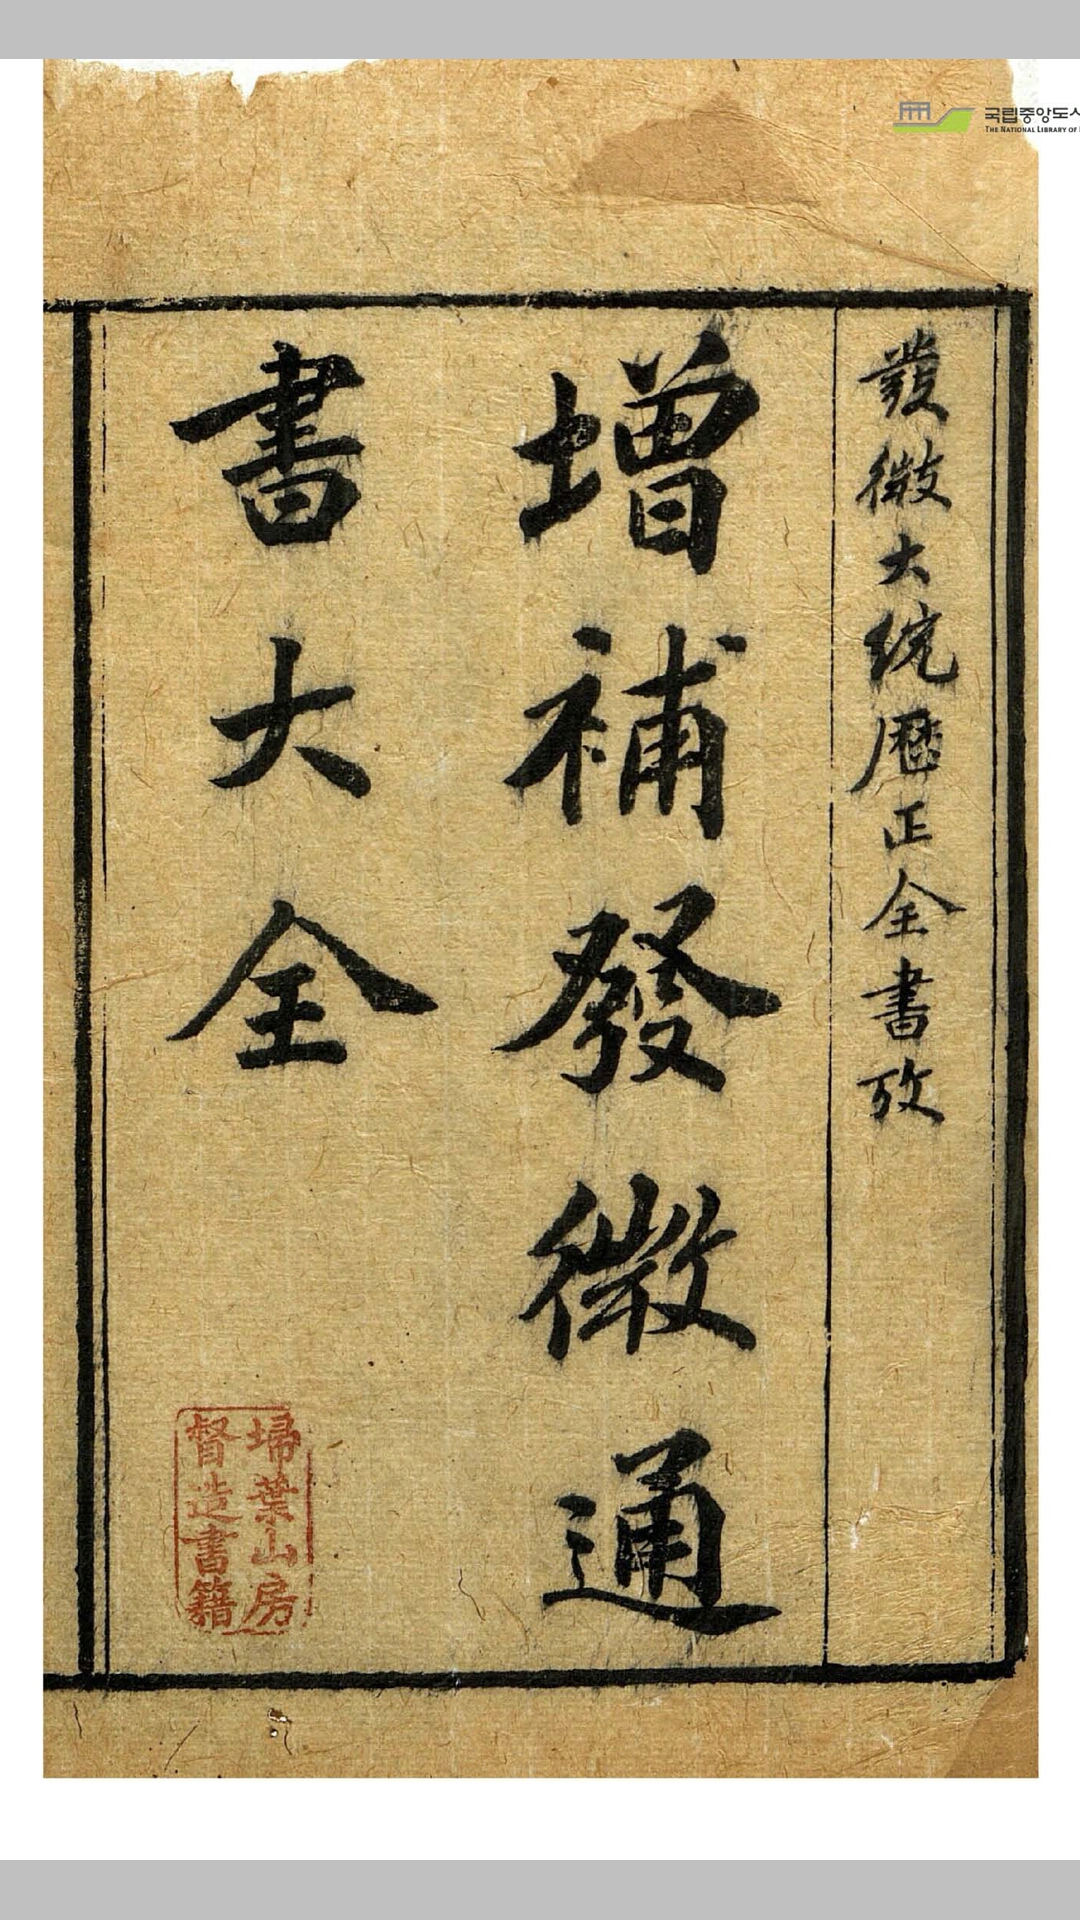 發微大統曆正全書攷
增補發微通
書大全
埽葉山房
督造書籍
국립중앙도서
THE NATIONAL LIBRARY OF